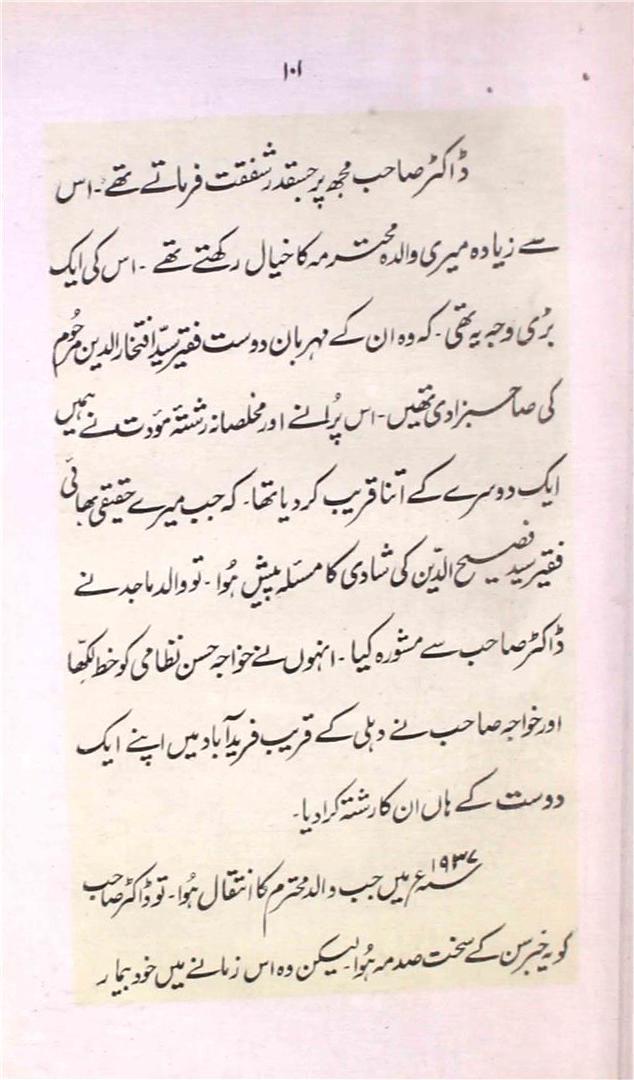 ۱۰۱
ڈاکٹر صاحب مجھ پر جسقدر شفقت فرماتے تھے۔ اس
سے زیادہ میری والدہ محترمہ کا خیال رکھتے تھے۔ اس کی ایک
بڑی وجہ یہ تھی۔ کہ وہ ان کے مہربان دوست فقیر سیّد افتخار الدین مرحوم
کی صاحبزادی تھیں۔ اس پُرانے اور مخلصانہ رشتۂ مؤدت نے ہمیں
ایک دوسرے کے اتنا قریب کر دیا تھا۔ کہ جب میرے حقیقی بھائی
فقیر سید فصیح الدّین کی شادی کا مسئلہ پیش ہُوا۔ تو والد ماجد نے
ڈاکٹر صاحب سے مشورہ کیا۔ انہوں نے خواجہ حسن نظامی کو خط لکھّا
اور خواجہ صاحب نے دہلی کے قریب فریدآباد میں اپنے ایک
دوست کے ہاں ان کا رشتہ کرا دیا۔
۱۹۳۷ء میں جب والد محترم کا انتقال ہُوا۔ تو ڈاکٹر صاحب
کو یہ خبر سن کے سخت صدمہ ہُوا۔ لیکن وہ اس زمانے میں خود بیمار